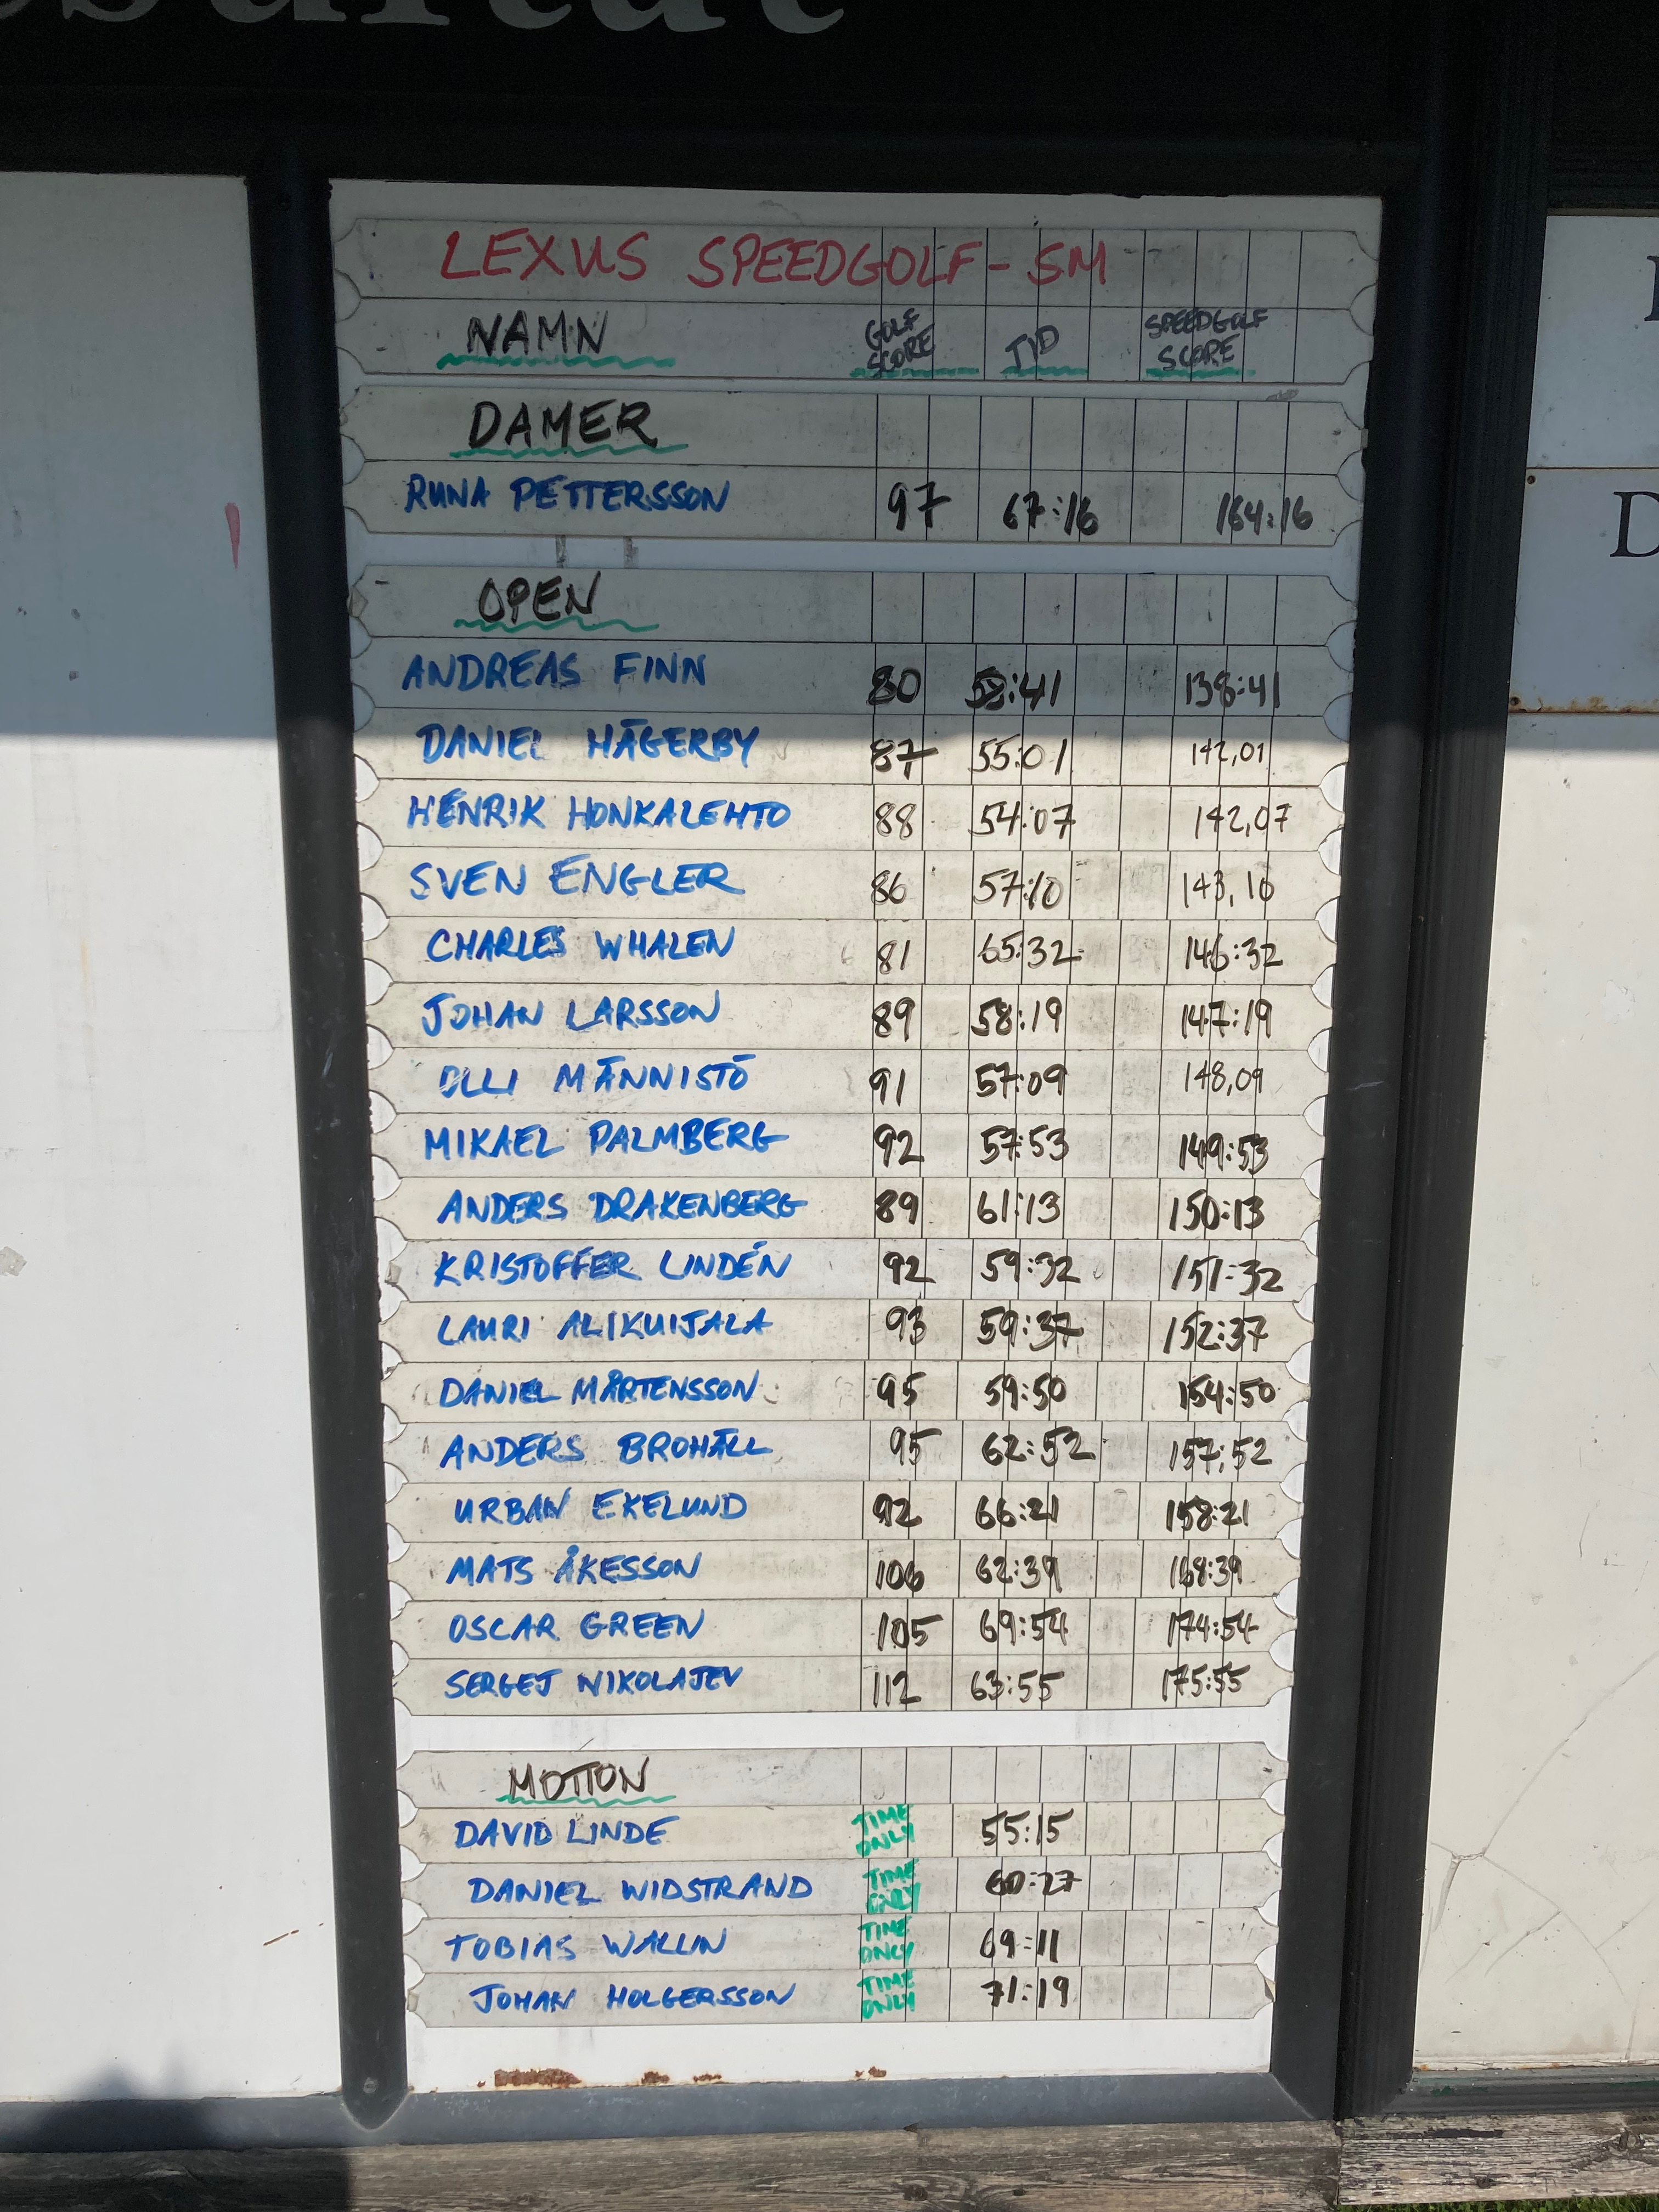 LEXUS SPEEDGOLF-SM
NAMN GOLF SCORE TID SPEEDGOLF SCORE
DAMER
RUNA PETTERSSON 97 67:16 164:16
OPEN
ANDREAS FINN 80 58:41 138:41
DANIEL HÄGERBY 87 55:01 142,01
HENRIK HONKALEHTO 88 54:07 142,07
SVEN ENGLER 86 57:10 143,10
CHARLES WHALEN 81 65:32 146:32
JOHAN LARSSON 89 58:19 147:19
OLLI MÄNNISTÖ 91 57:09 148,09
MIKAEL PALMBERG 92 57:53 149:53
ANDERS DRAKENBERG 89 61:13 150:13
KRISTOFFER LINDÉN 92 59:32 151:32
LAURI ALIKUIJALA 93 59:37 152:37
DANIEL MÅRTENSSON 95 59:50 154:50
ANDERS BROHÄLL 95 62:52 157:52
URBAN EKELUND 92 66:21 158:21
MATS ÅKESSON 106 62:39 168:39
OSCAR GREEN 105 69:54 174:54
SERGEJ NIKOLAJEV 112 63:55 175:55
MOTION
DAVID LINDE TIME ONLY 55:15
DANIEL WIDSTRAND TIME ONLY 60:27
TOBIAS WALLIN TIME ONLY 69:11
JOHAN HOLGERSSON TIME ONLY 71:19
D